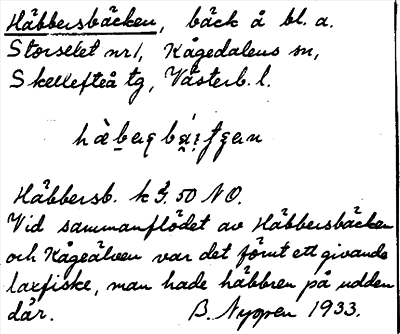 Häbbersbäcken, bäck å bl. a.
Storselet nr 1, Kågedalens sn,
Skellefteå tg, Västerb. l.
Häbbersb. k G. 50 NO.
Vid sammanflödet av Häbbersbäcken
och Kågeälven var det förut ett givande
laxfiske, man hade häbbren på udden
där. B. Nygren 1933.